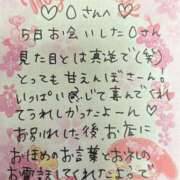 ♡Oさんへ♡
5日お会いしたOさん
見た目とは真逆で(笑)
とっても甘えんぼさーん!
いっぱい感じて喜んでくれ
てうれしかったよーん♡
お別れした後、お店に
おほめのお言葉とおなじの
お電話してくれたよって